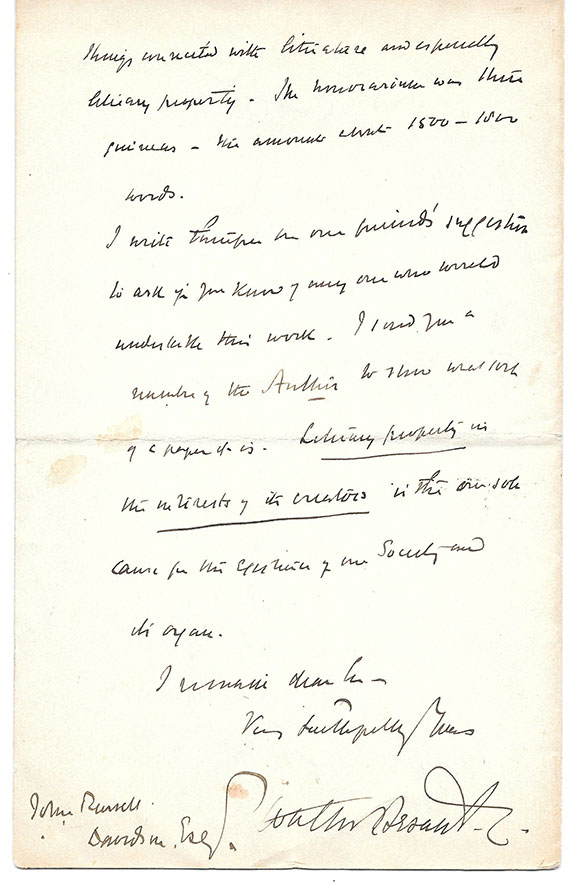 things connected with literature and especially
literary property. The honorarium was three
guineas – the amount about 1500 – 1800
words.
I write therefore on our friend's suggestion
to ask if you know of any one who would
undertake this work. I send you a
number of the Author to show what sort
of a paper it is. Literary property in
the interests of its creators is the one sole
cause for the existence of our Society and
its organ.
I remain dear Sir –
Very faithfully Yours
Walter Besant.
John Russell
Davidson, Esq.